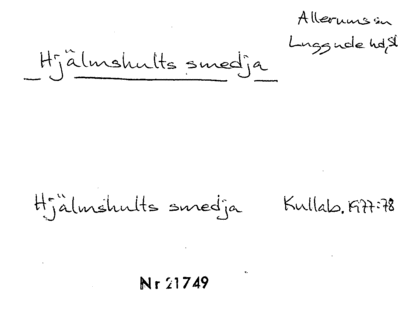 Allerums sn
Hjälmshults smedja
Luggude hd, Sk
Hjälmshults smedja Kullab. 1977:78
Nr 21749